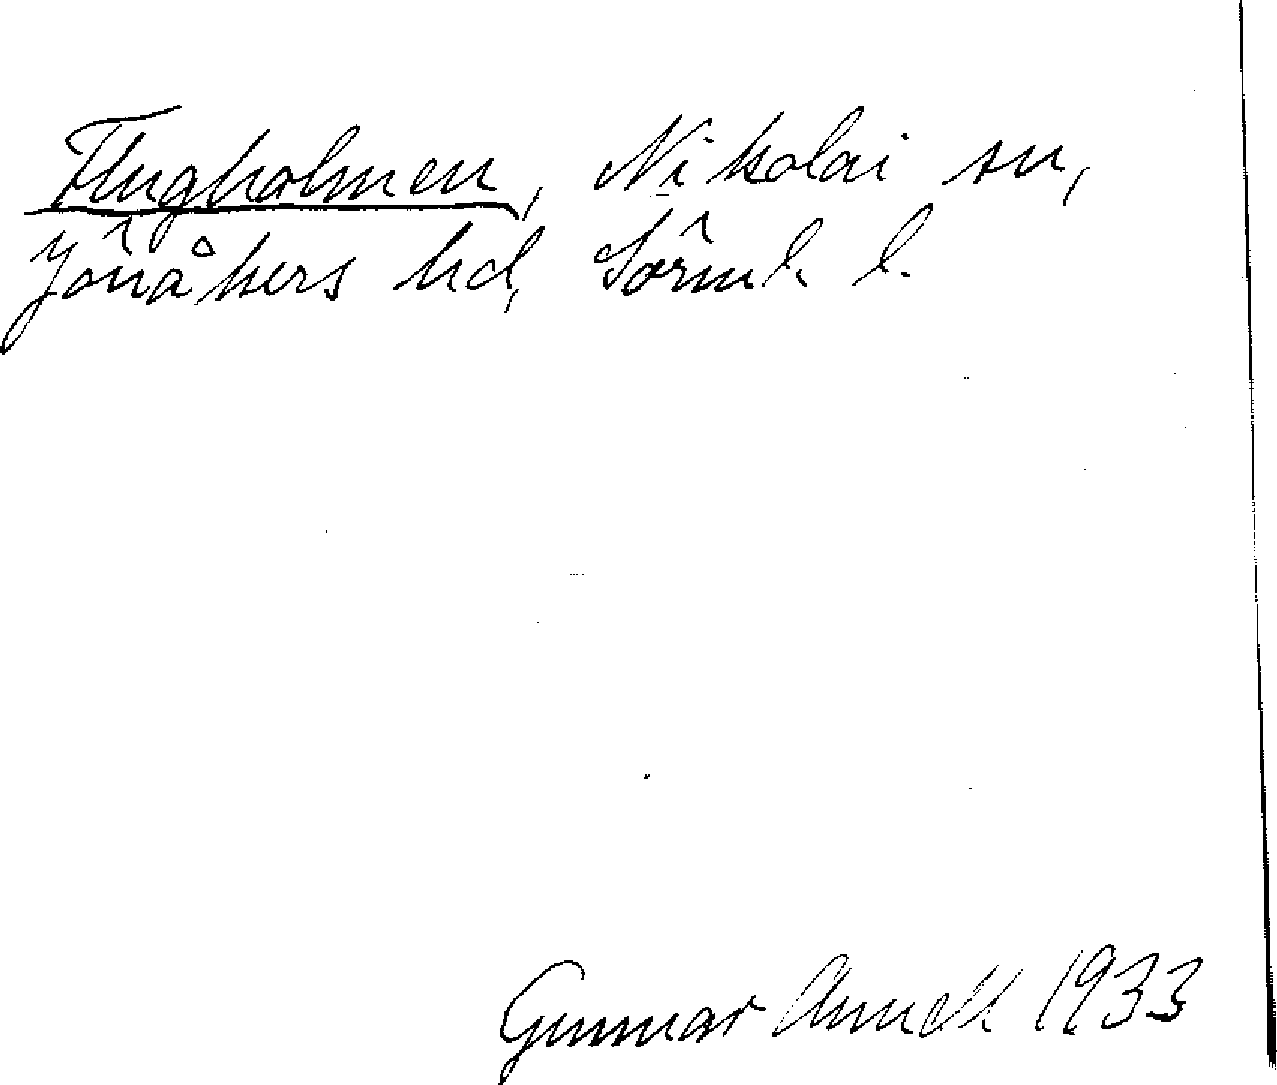 Flugholmen, Nikolai sn,
Jönåkers hd, Sörml. l.
Gunnar 1933